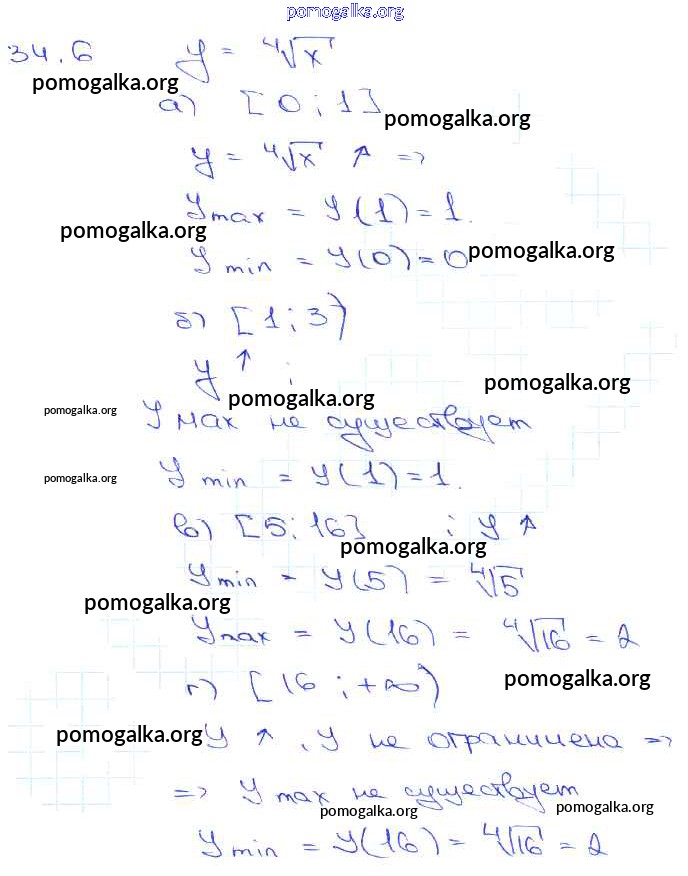 pomogalka.org
34.6 y = ⁴√x
pomogalka.org
а) [0; 1]
pomogalka.org
y = ⁴√x ↑ =>
y max = y(1) = 1.
pomogalka.org
y min = y(0) = 0
pomogalka.org
б) [1; 3)
y ↑ ;
pomogalka.org
pomogalka.org
pomogalka.org
y мах не существует
pomogalka.org
y min = y(1) = 1.
в) [5; 16] ; y ↑
pomogalka.org
y min = y(5) = ⁴√5
pomogalka.org
y max = y(16) = ⁴√16 = 2
г) [16; +∞)
pomogalka.org
pomogalka.org
y ↑, y не ограничена =>
=> y max не существует
pomogalka.org
pomogalka.org
y min = y(16) = ⁴√16 = 2